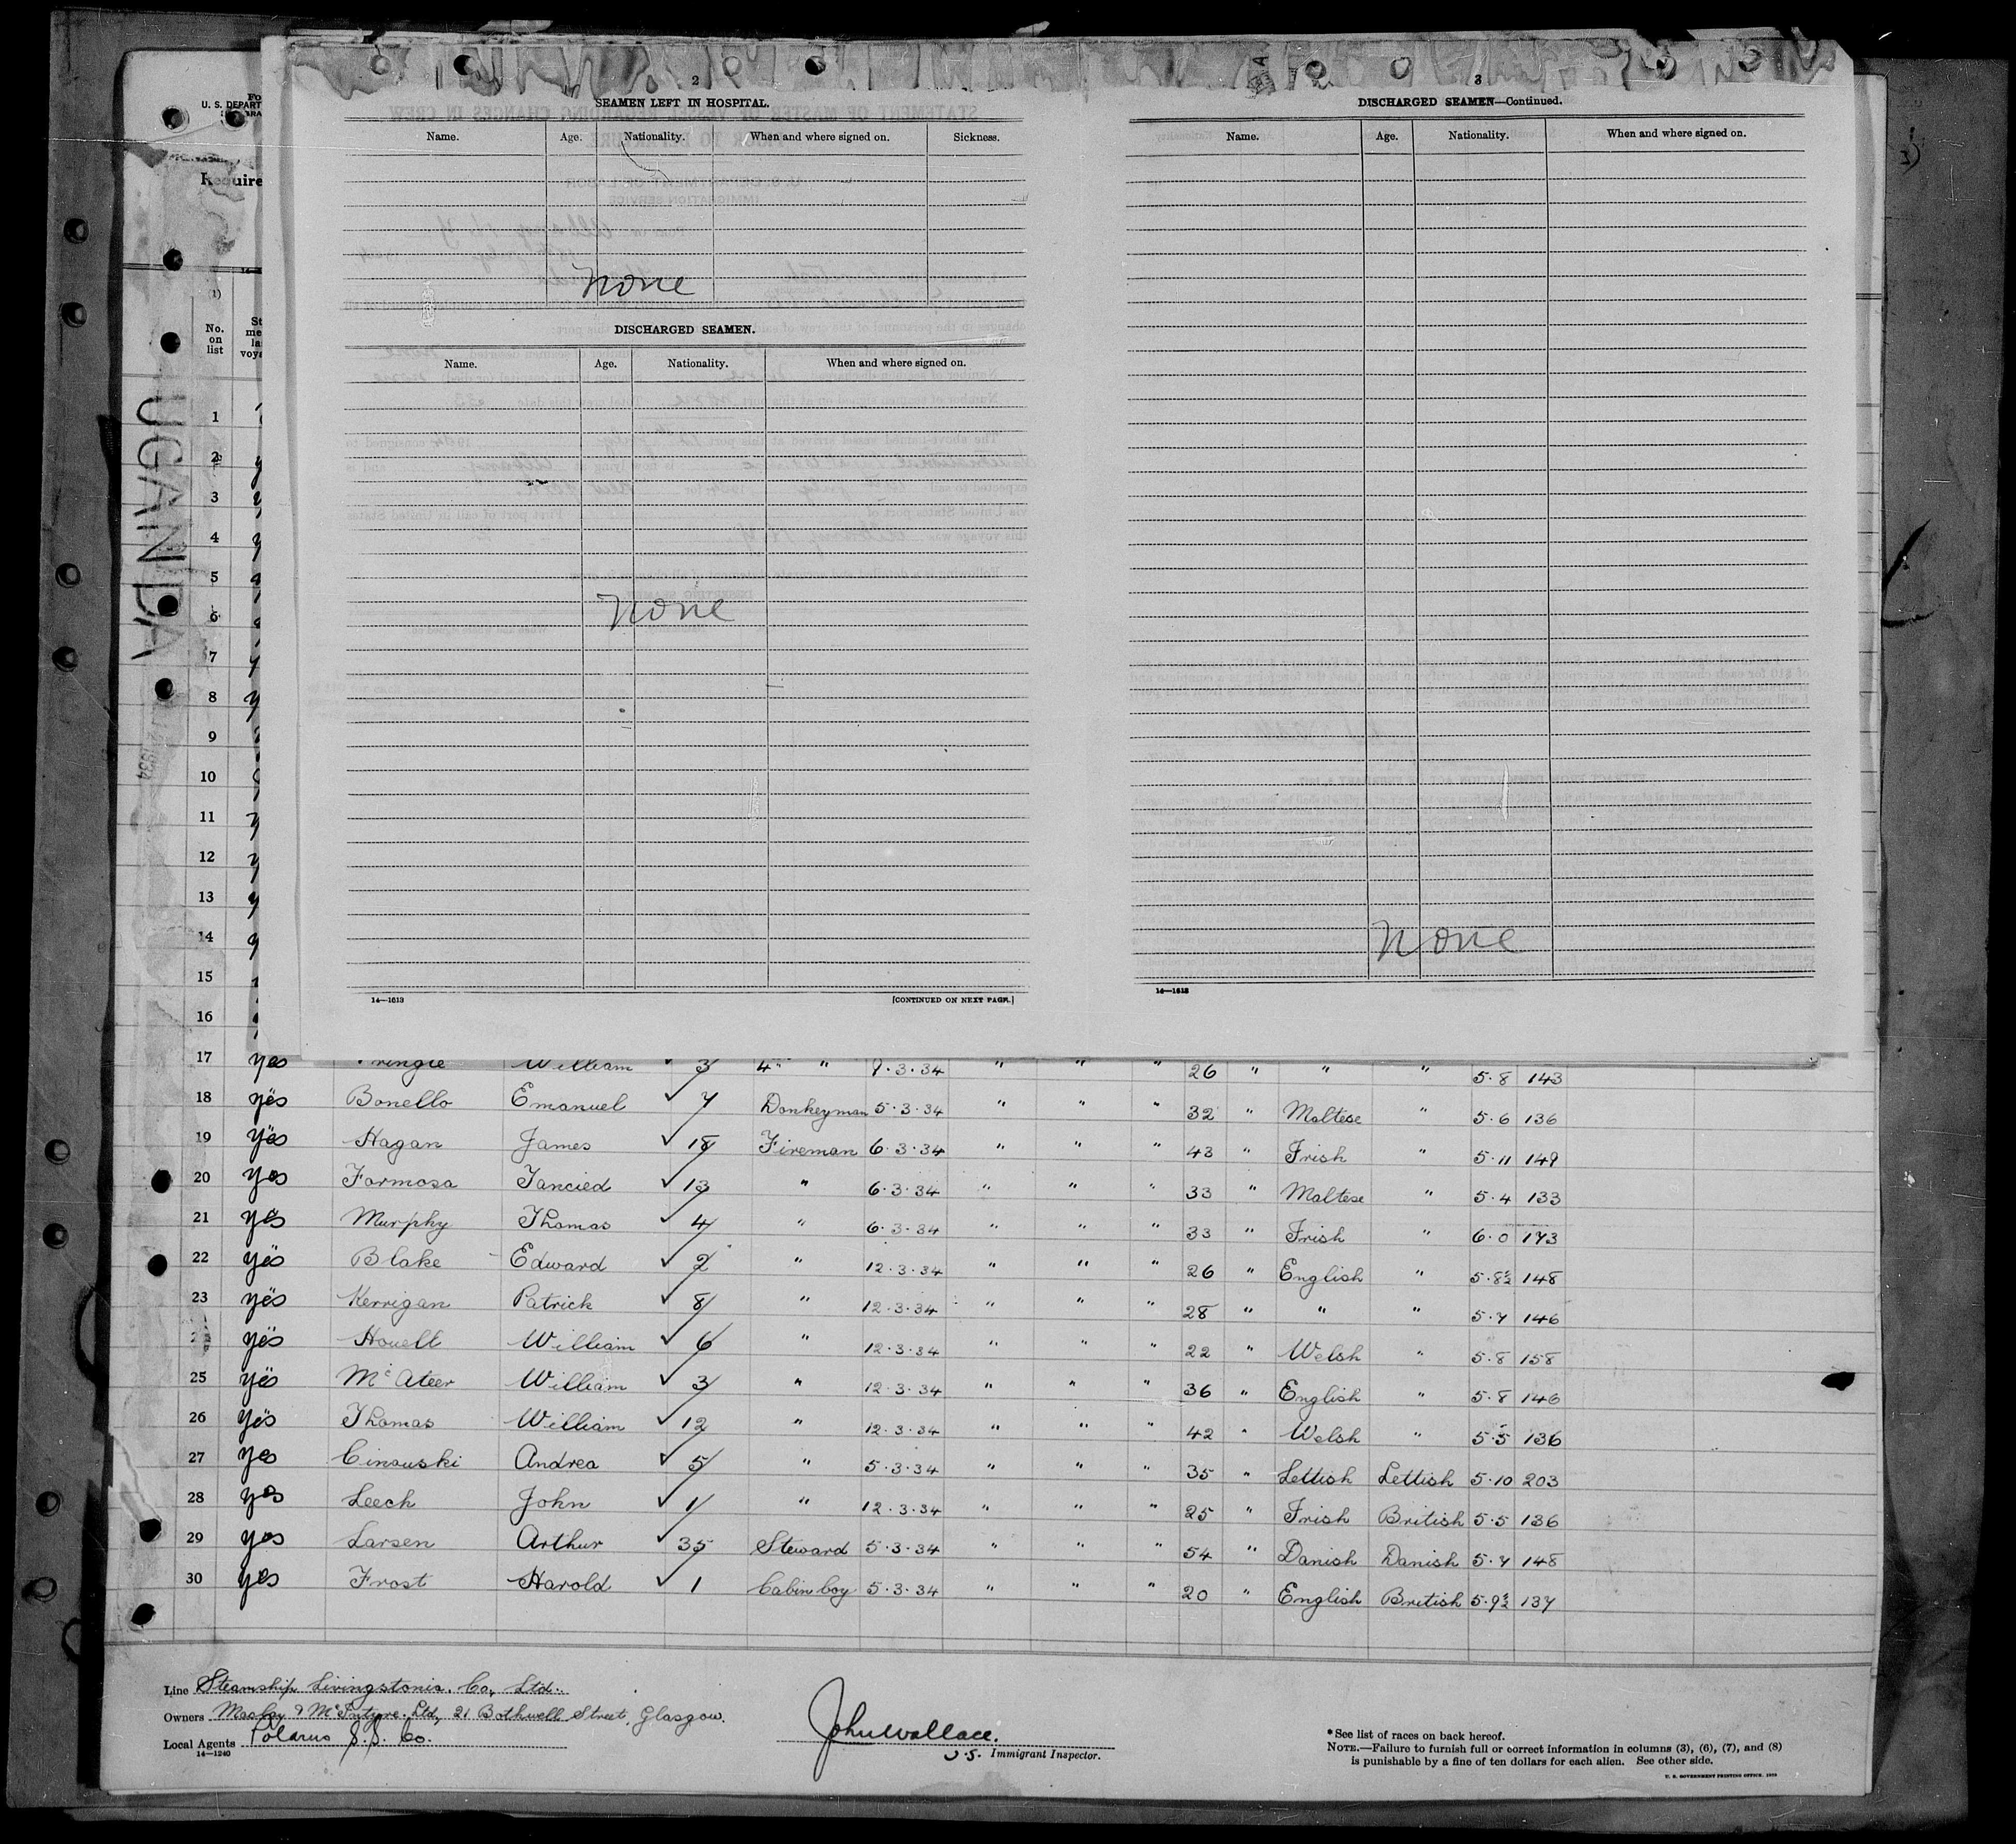 2
SEAMEN LEFT IN HOSPITAL.
Name. Age. Nationality. When and where signed on. Sickness.
None
DISCHARGED SEAMEN.
Name. Age. Nationality. When and where signed on.
None
14—1613 [CONTINUED ON NEXT PAGE.]
3
DISCHARGED SEAMEN—Continued.
Name. Age. Nationality. When and where signed on.
None
14—1613
U. S. DEPART
Require
(1)
No. on list
UGANDA
1
2
3
4
5
6
7
8
9
10
11
12
13
14
15
16
17 yes Pringle William ✓ 3 4" " 9.3.34 " " " 26 " " " 5.8 143
18 yes Bonello Emanuel ✓ 7 Donkeyman 5.3.34 " " " 32 " Maltese " 5.6 136
19 yes Hagan James ✓ 18 Fireman 6.3.34 " " " 43 " Irish " 5.11 149
20 yes Formosa Tancied ✓ 13 " 6.3.34 " " " 33 " Maltese " 5.4 133
21 yes Murphy Thomas ✓ 4 " 6.3.34 " " " 33 " Irish " 6.0 173
22 yes Blake Edward ✓ 2 " 12.3.34 " " " 26 " English " 5.8½ 148
23 yes Kerrigan Patrick ✓ 8 " 12.3.34 " " " 28 " " " 5.7 146
yes Howell William ✓ 6 " 12.3.34 " " " 22 " Welsh " 5.8 158
25 yes McAteer William ✓ 3 " 12.3.34 " " " 36 " English " 5.8 146
26 yes Thomas William ✓ 12 " 12.3.34 " " " 42 " Welsh " 5.5 136
27 yes Cinouski Andrea ✓ 5 " 5.3.34 " " " 35 " Lettish Lettish 5.10 203
28 yes Leech John ✓ 1 " 12.3.34 " " " 25 " Irish British 5.5 136
29 yes Larsen Arthur ✓ 35 Steward 5.3.34 " " " 54 " Danish Danish 5.7 148
30 yes Frost Harold ✓ 1 Cabin boy 5.3.34 " " " 20 " English British 5.9½ 137
Line Steamship Livingstonia. Co, Ltd.
Owners Maclay & McIntyre. Ltd, 21 Bothwell Street, Glasgow.
Local Agents Polarus S.S. Co.
14—1240
John Wallace.
U.S. Immigrant Inspector.
*See list of races on back hereof.
NOTE.—Failure to furnish full or correct information in columns (3), (6), (7), and (8)
is punishable by a fine of ten dollars for each alien. See other side.
U. S. GOVERNMENT PRINTING OFFICE